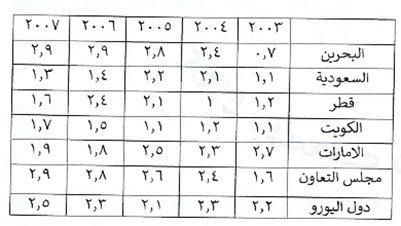 ٢٠٠٣ ٢٠٠٤ ٢٠٠٥ ٢٠٠٦ ٢٠٠٧
البحرين ٠,٧ ٢,٤ ٢,٨ ٢,٩ ٢,٩
السعودية ١,١ ٢,١ ٢,٢ ١,٤ ١,٣
قطر ١,٢ ١ ٢,١ ٢,٤ ١,٦
الكويت ١,١ ١,٢ ١,١ ١,٥ ١,٧
الامارات ٢,٧ ٢,٣ ٢,٥ ١,٨ ١,٩
مجلس التعاون ١,٦ ٢,٤ ٢,٦ ٢,٨ ٢,٩
دول اليورو ٢,٢ ٢,٣ ٢,١ ٢,٣ ٢,٥